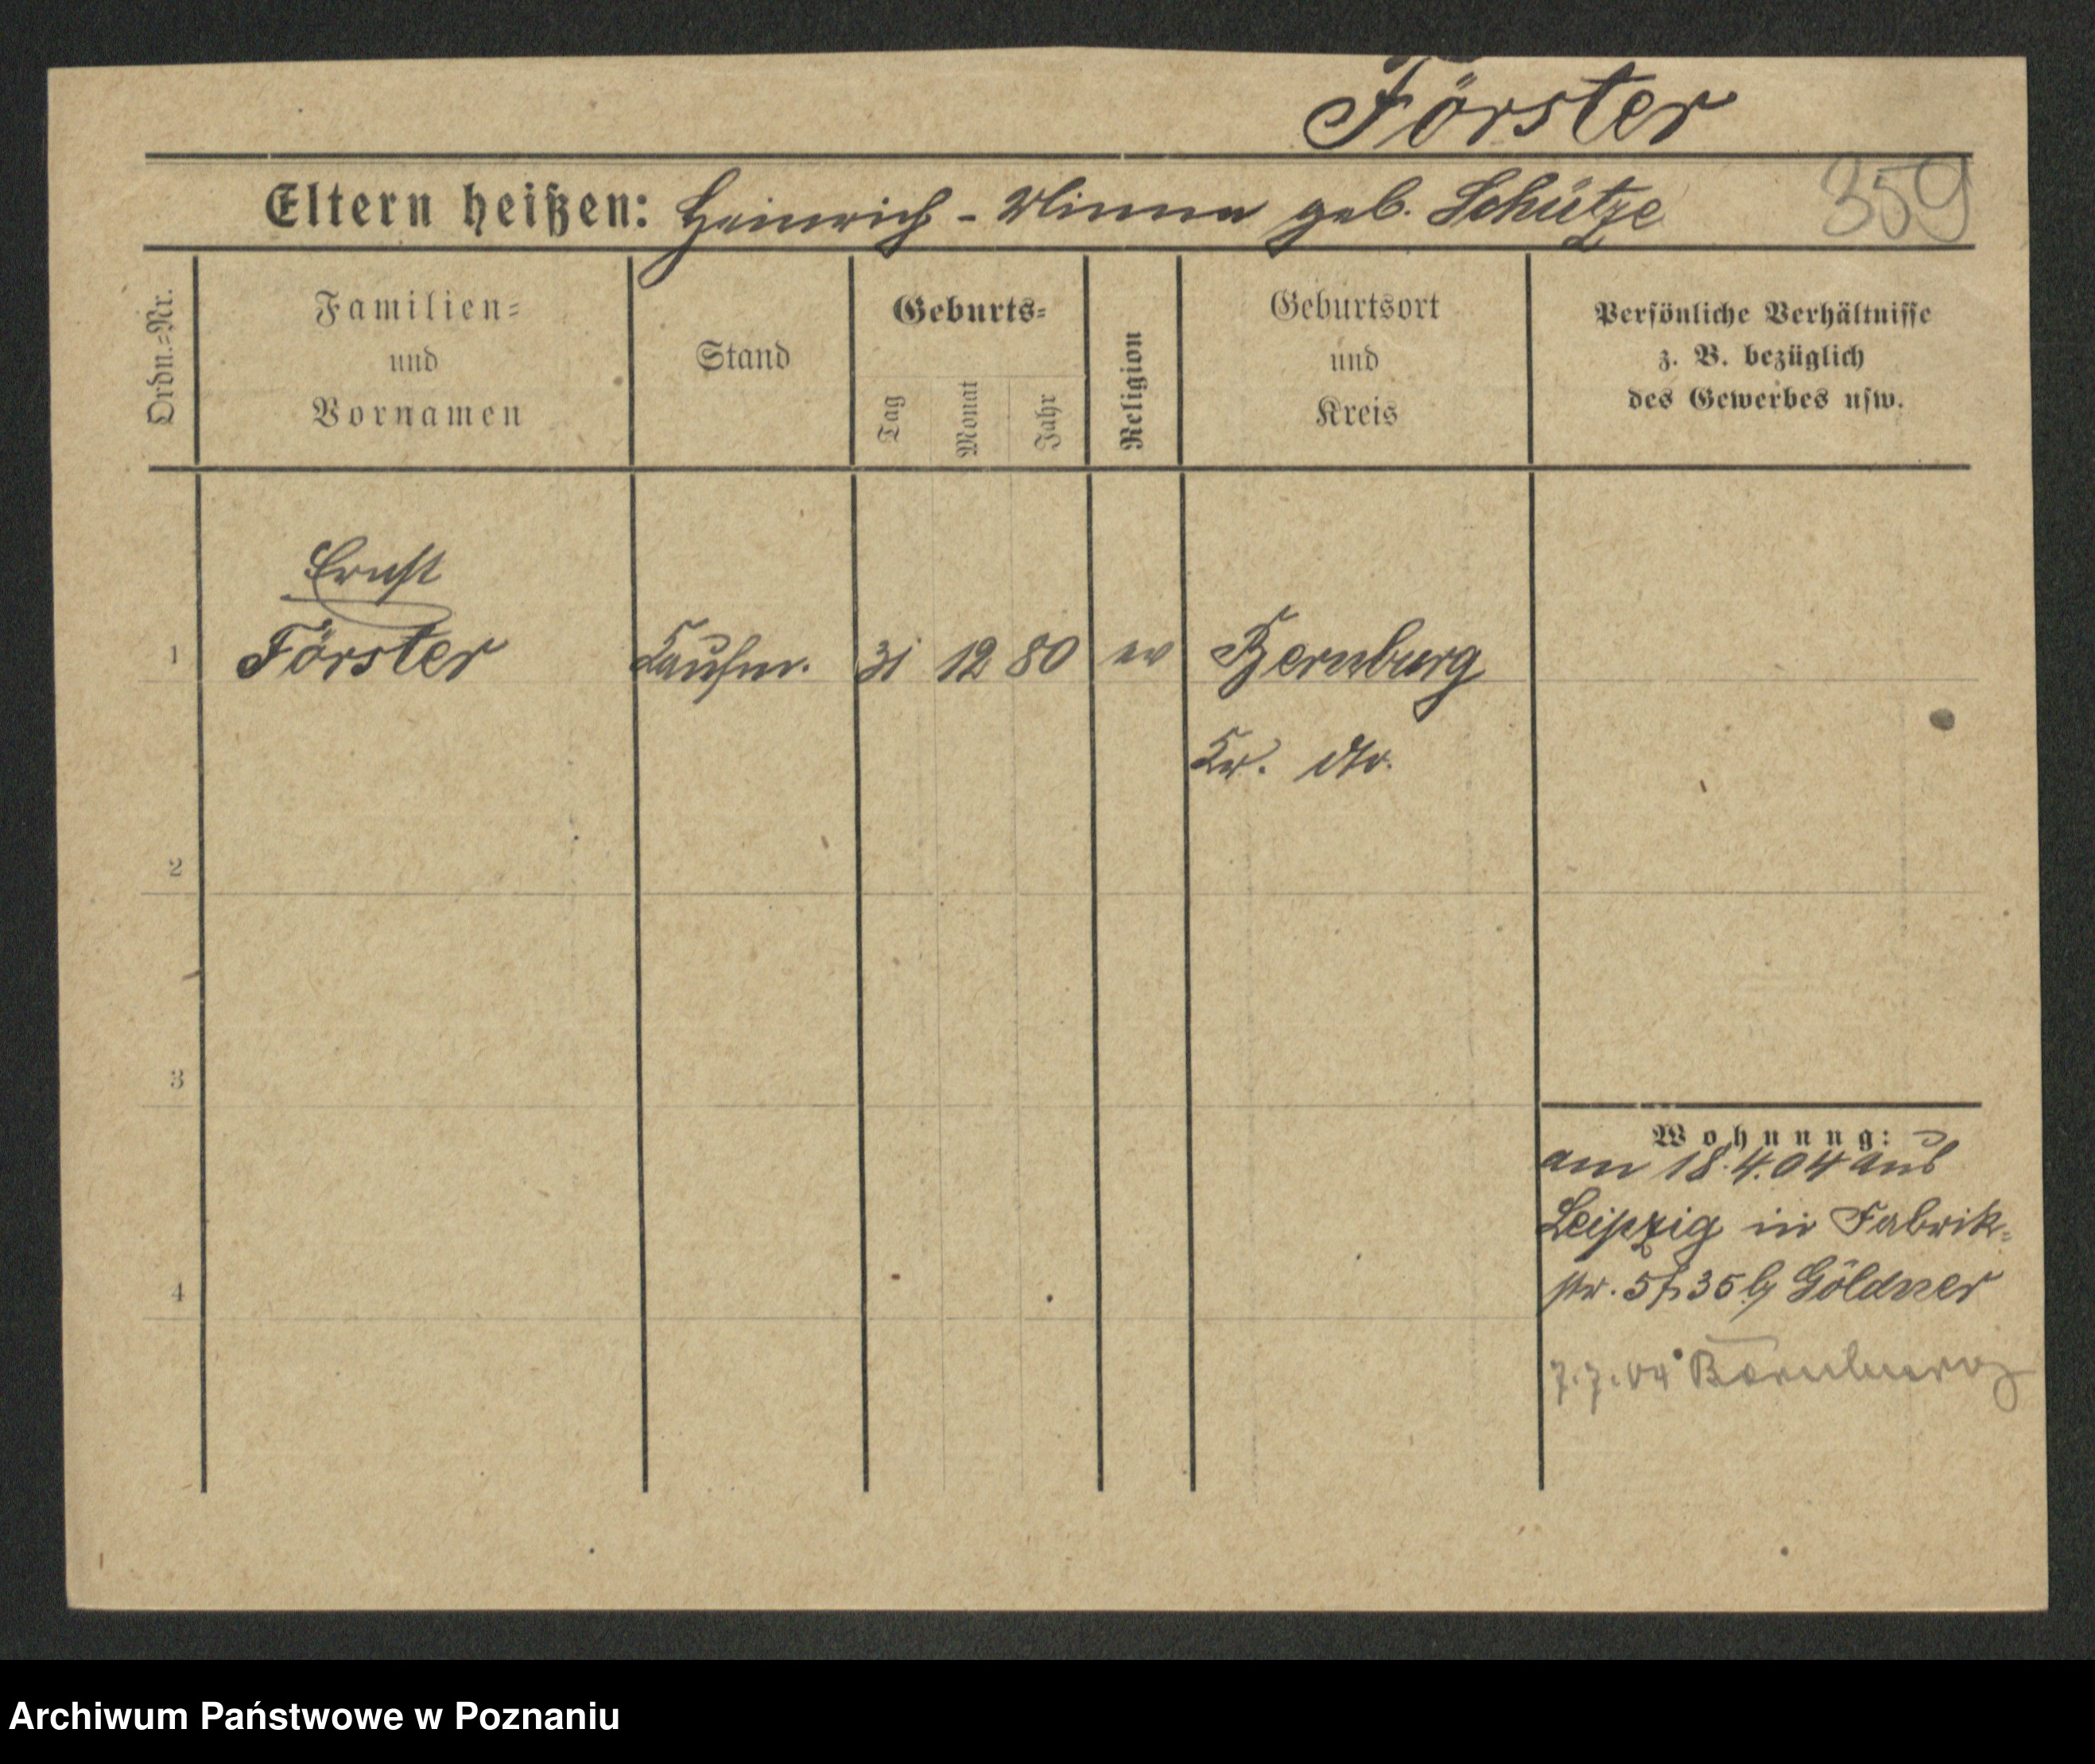 Förster
Eltern heißen: Heinrich - Minna geb. Schütze
359
Ordn.=Nr.
Familien=
und
Vornamen
Stand
Geburts=
Tag
Monat
Jahr
Religion
Geburtsort
und
Kreis
Persönliche Verhältnisse
z. B. bezüglich
des Gewerbes usw.
Ernst
1 Förster Kaufm. 31 12 80 ev Bernburg
Kr. dto.
2
3
4
Wohnung:
am 18.4.04 aus
Leipzig in Fabrik=
str. 35 b/ Göldner
7.7.04 Bernburg
Archiwum Państwowe w Poznaniu